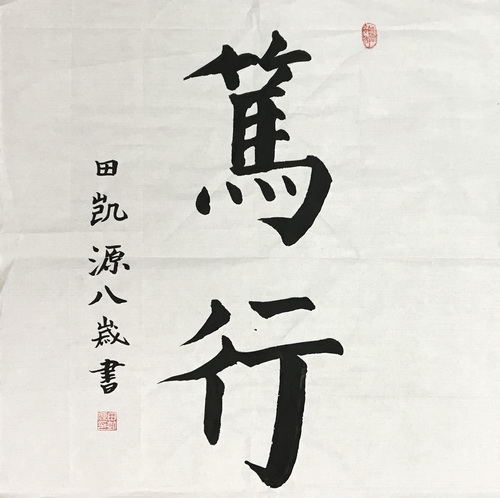 篤行
田凯源八歲書